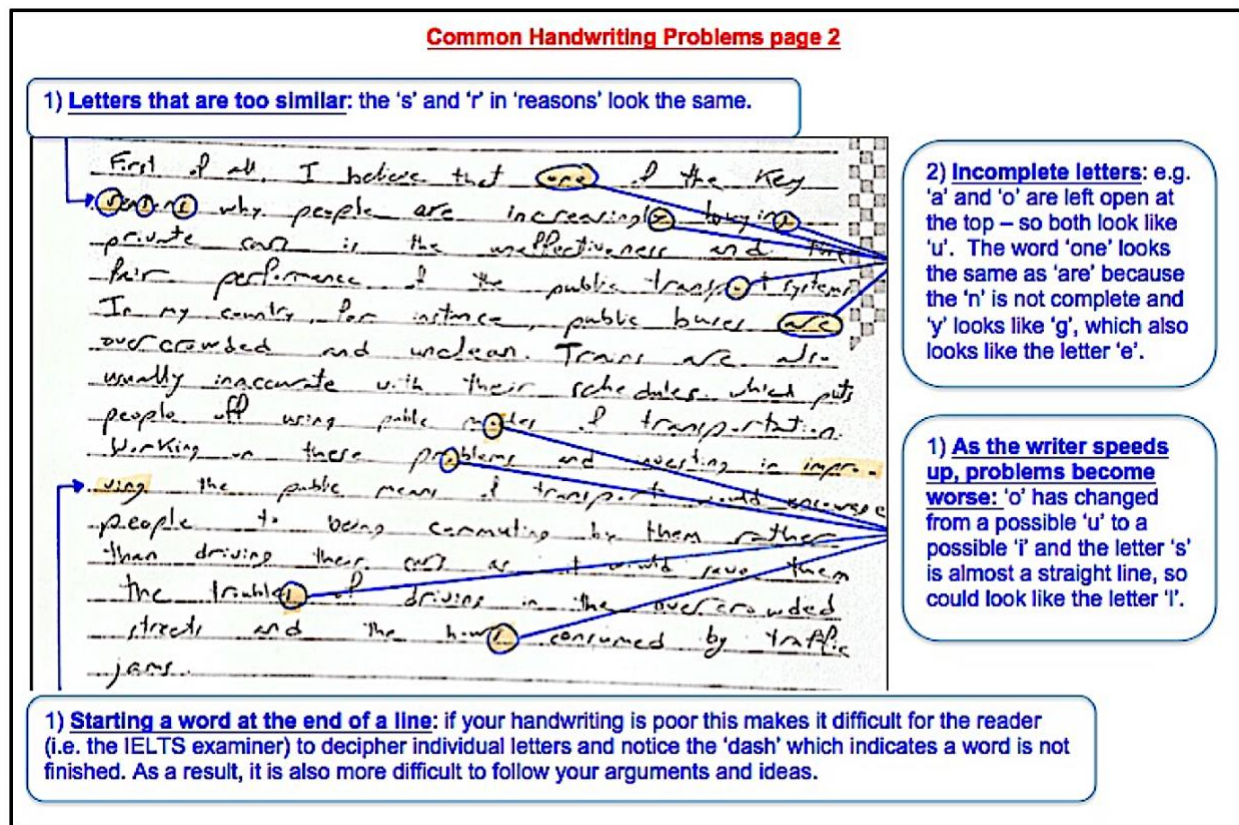 Common Handwriting Problems page 2
1) Letters that are too similar: the 's' and 'r' in 'reasons' look the same.
First of all, I believe that one of the key
reasons why people are increasingly buying
private cars is the uneffectiveness and the
fair performance of the public transport systems.
In my country, for instance, public buses are
overcrowded and unclean. Trains are also
usually inaccurate with their schedules which puts
people off using public modes of transportation.
Working on these problems and investing in impro-
ving the public means of transport would encourage
people to being commuting by them rather
than driving their cars as it would save them
the troubles of driving in the overcrowded
streets and the hours consumed by traffic
jams.
2) Incomplete letters: e.g.
'a' and 'o' are left open at
the top – so both look like
'u'. The word 'one' looks
the same as 'are' because
the 'n' is not complete and
'y' looks like 'g', which also
looks like the letter 'e'.
1) As the writer speeds
up, problems become
worse: 'o' has changed
from a possible 'u' to a
possible 'i' and the letter 's'
is almost a straight line, so
could look like the letter 'l'.
1) Starting a word at the end of a line: if your handwriting is poor this makes it difficult for the reader
(i.e. the IELTS examiner) to decipher individual letters and notice the 'dash' which indicates a word is not
finished. As a result, it is also more difficult to follow your arguments and ideas.